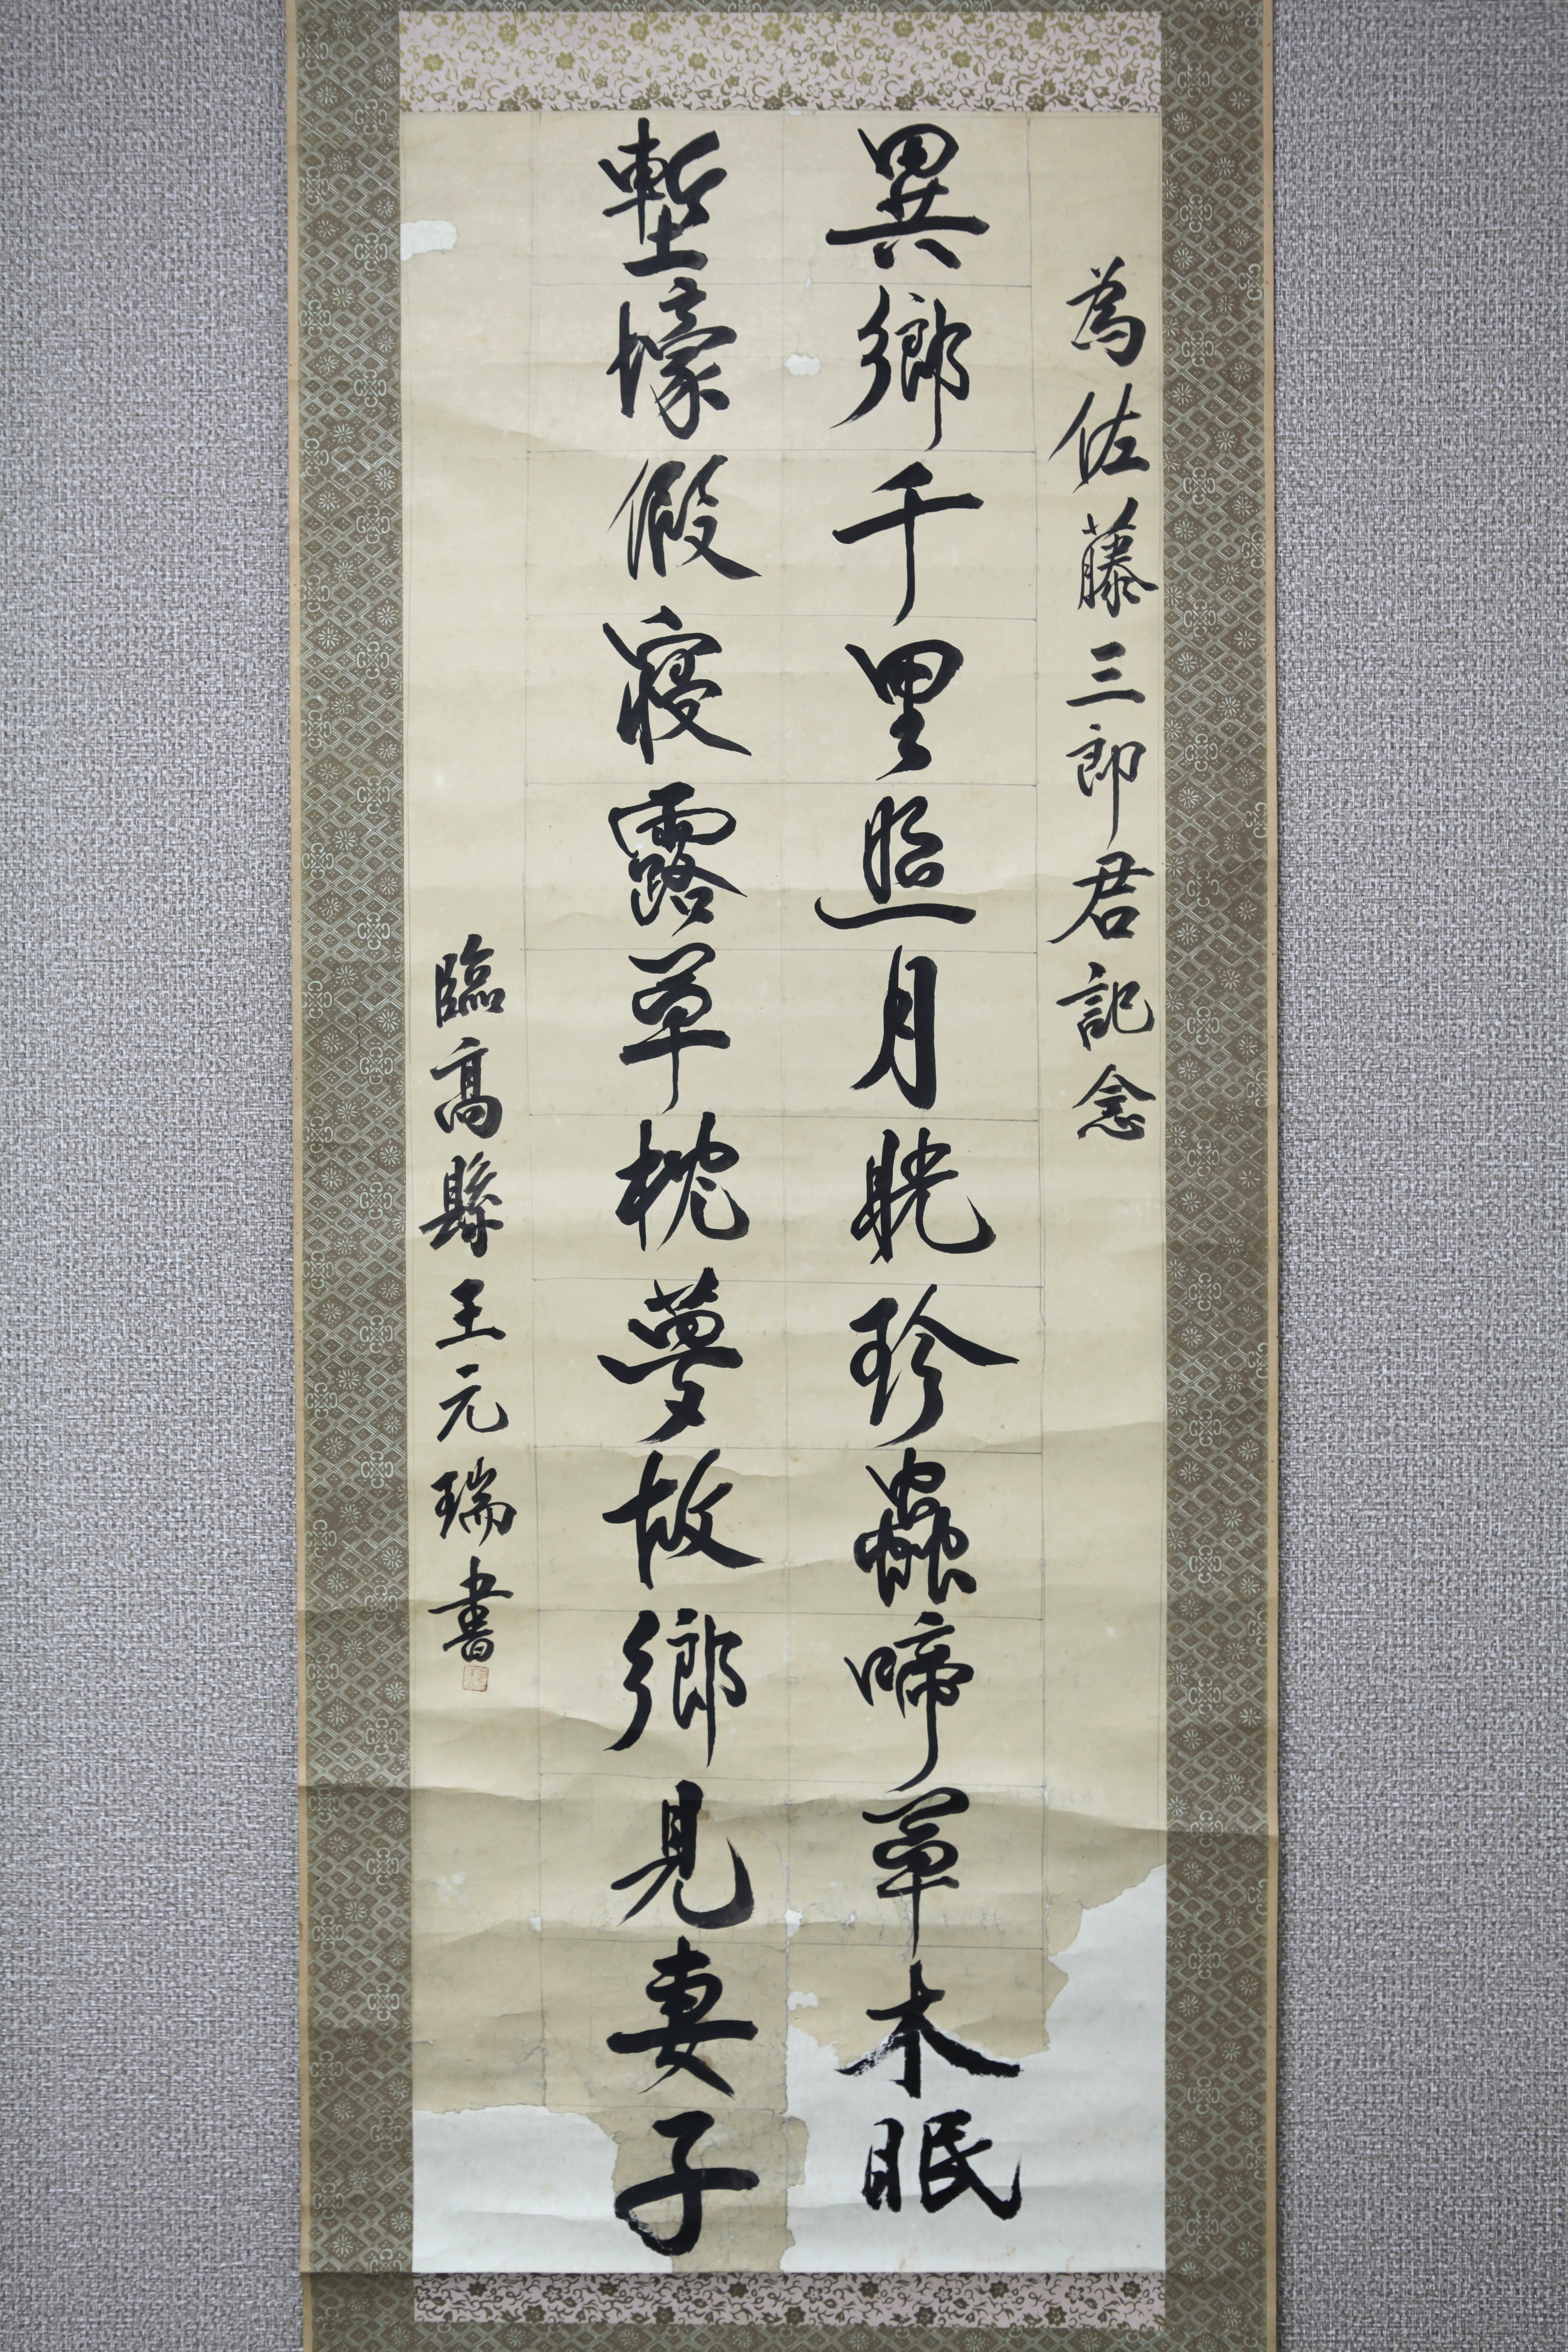 為佐藤三郎君記念
異鄉千里照月晄珍蟲啼草木眠
塹壕假寢露草枕夢故鄉見妻子
臨高縣王元瑞書